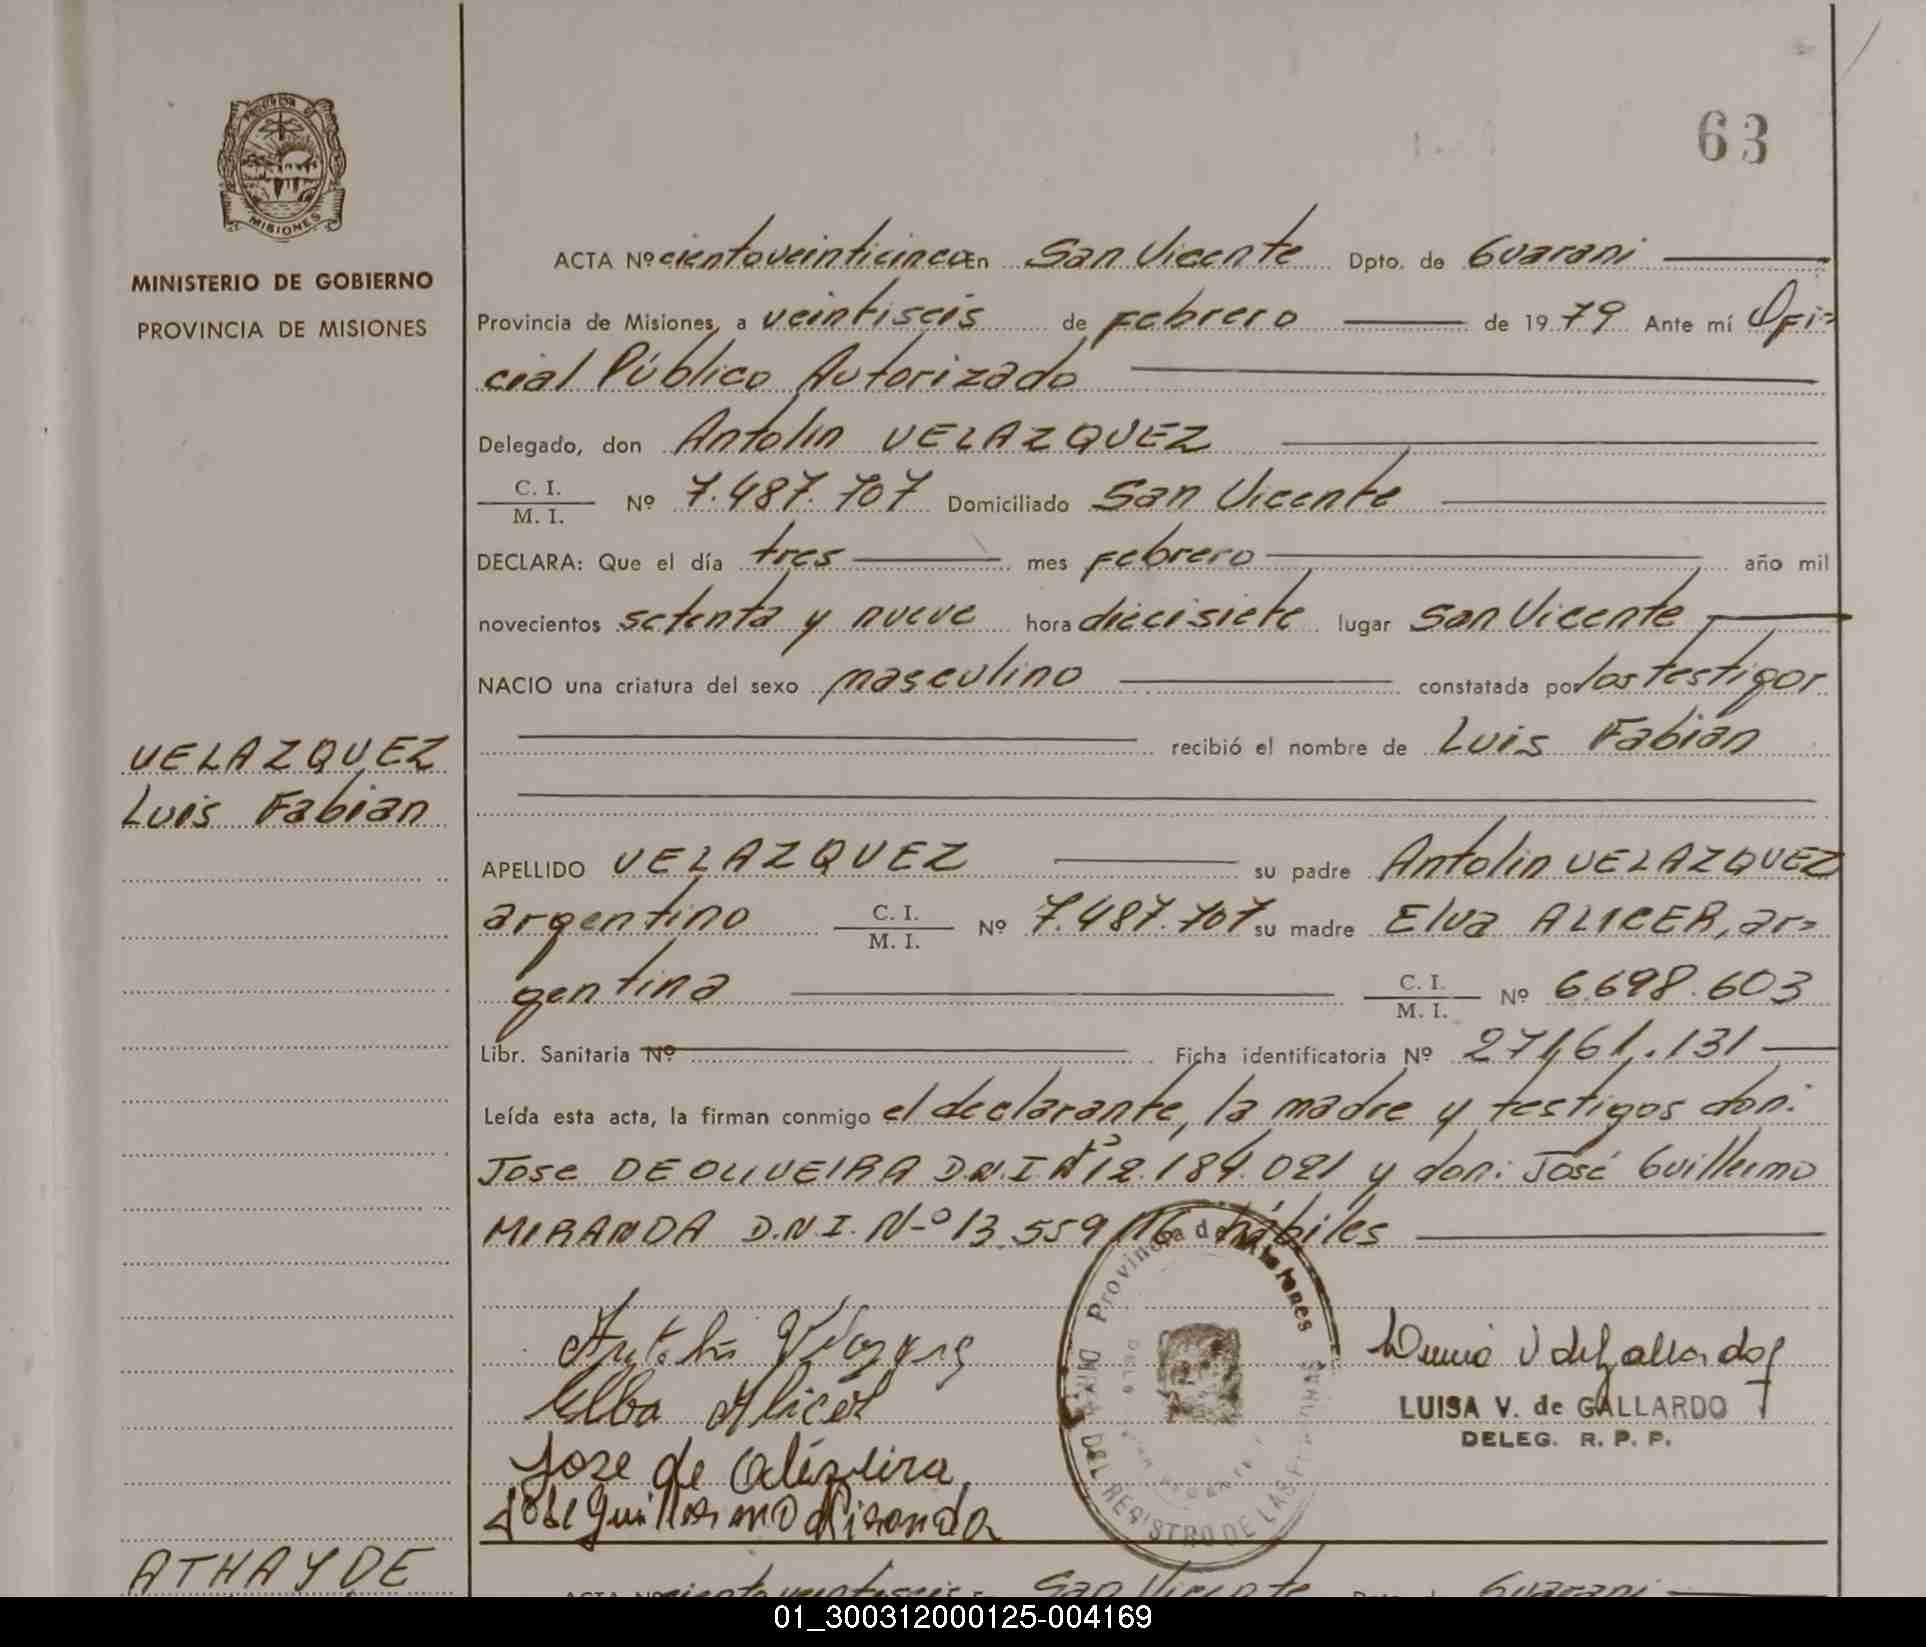 63
MISIONES
MINISTERIO DE GOBIERNO
PROVINCIA DE MISIONES
ACTA Nº cientoveinticinco En San Vicente Dpto. de Guarani
Provincia de Misiones, a veintiseis de Febrero de 1979 Ante mí Ofi=
cial Público Autorizado
Delegado, don Antolin VELAZQUEZ
C. I.
M. I. Nº 7.487.707 Domiciliado San Vicente
DECLARA: Que el día tres mes Febrero año mil
novecientos setenta y nueve hora diecisiete lugar San Vicente
NACIO una criatura del sexo masculino constatada por los testigos
recibió el nombre de Luis Fabian
VELAZQUEZ
Luis Fabian
APELLIDO VELAZQUEZ su padre Antolin VELAZQUEZ
argentino C. I. M. I. Nº 7.487.707 su madre Elva ALICER, ar=
gentina C. I. M. I. Nº 6.698.603
Libr. Sanitaria Nº Ficha identificatoria Nº 27.161.131
Leída esta acta, la firman conmigo el declarante, la madre y testigos don:
Jose DE OLIVEIRA D.N.I Nº 12.184.021 y don: José Guillermo
MIRANDA D.N.I. Nº 13.559.116 hábiles
Provincia de Misiones
DEL REGISTRO DE LAS PERSONAS
Elba Alicer
Jose de Oliveira
Jose Guillermo Miranda
LUISA V. de GALLARDO
DELEG. R. P. P.
ATHAYDE
ACTA Nº cientoveintiseis En San Vicente Dpto. de Guarani
01_300312000125-004169